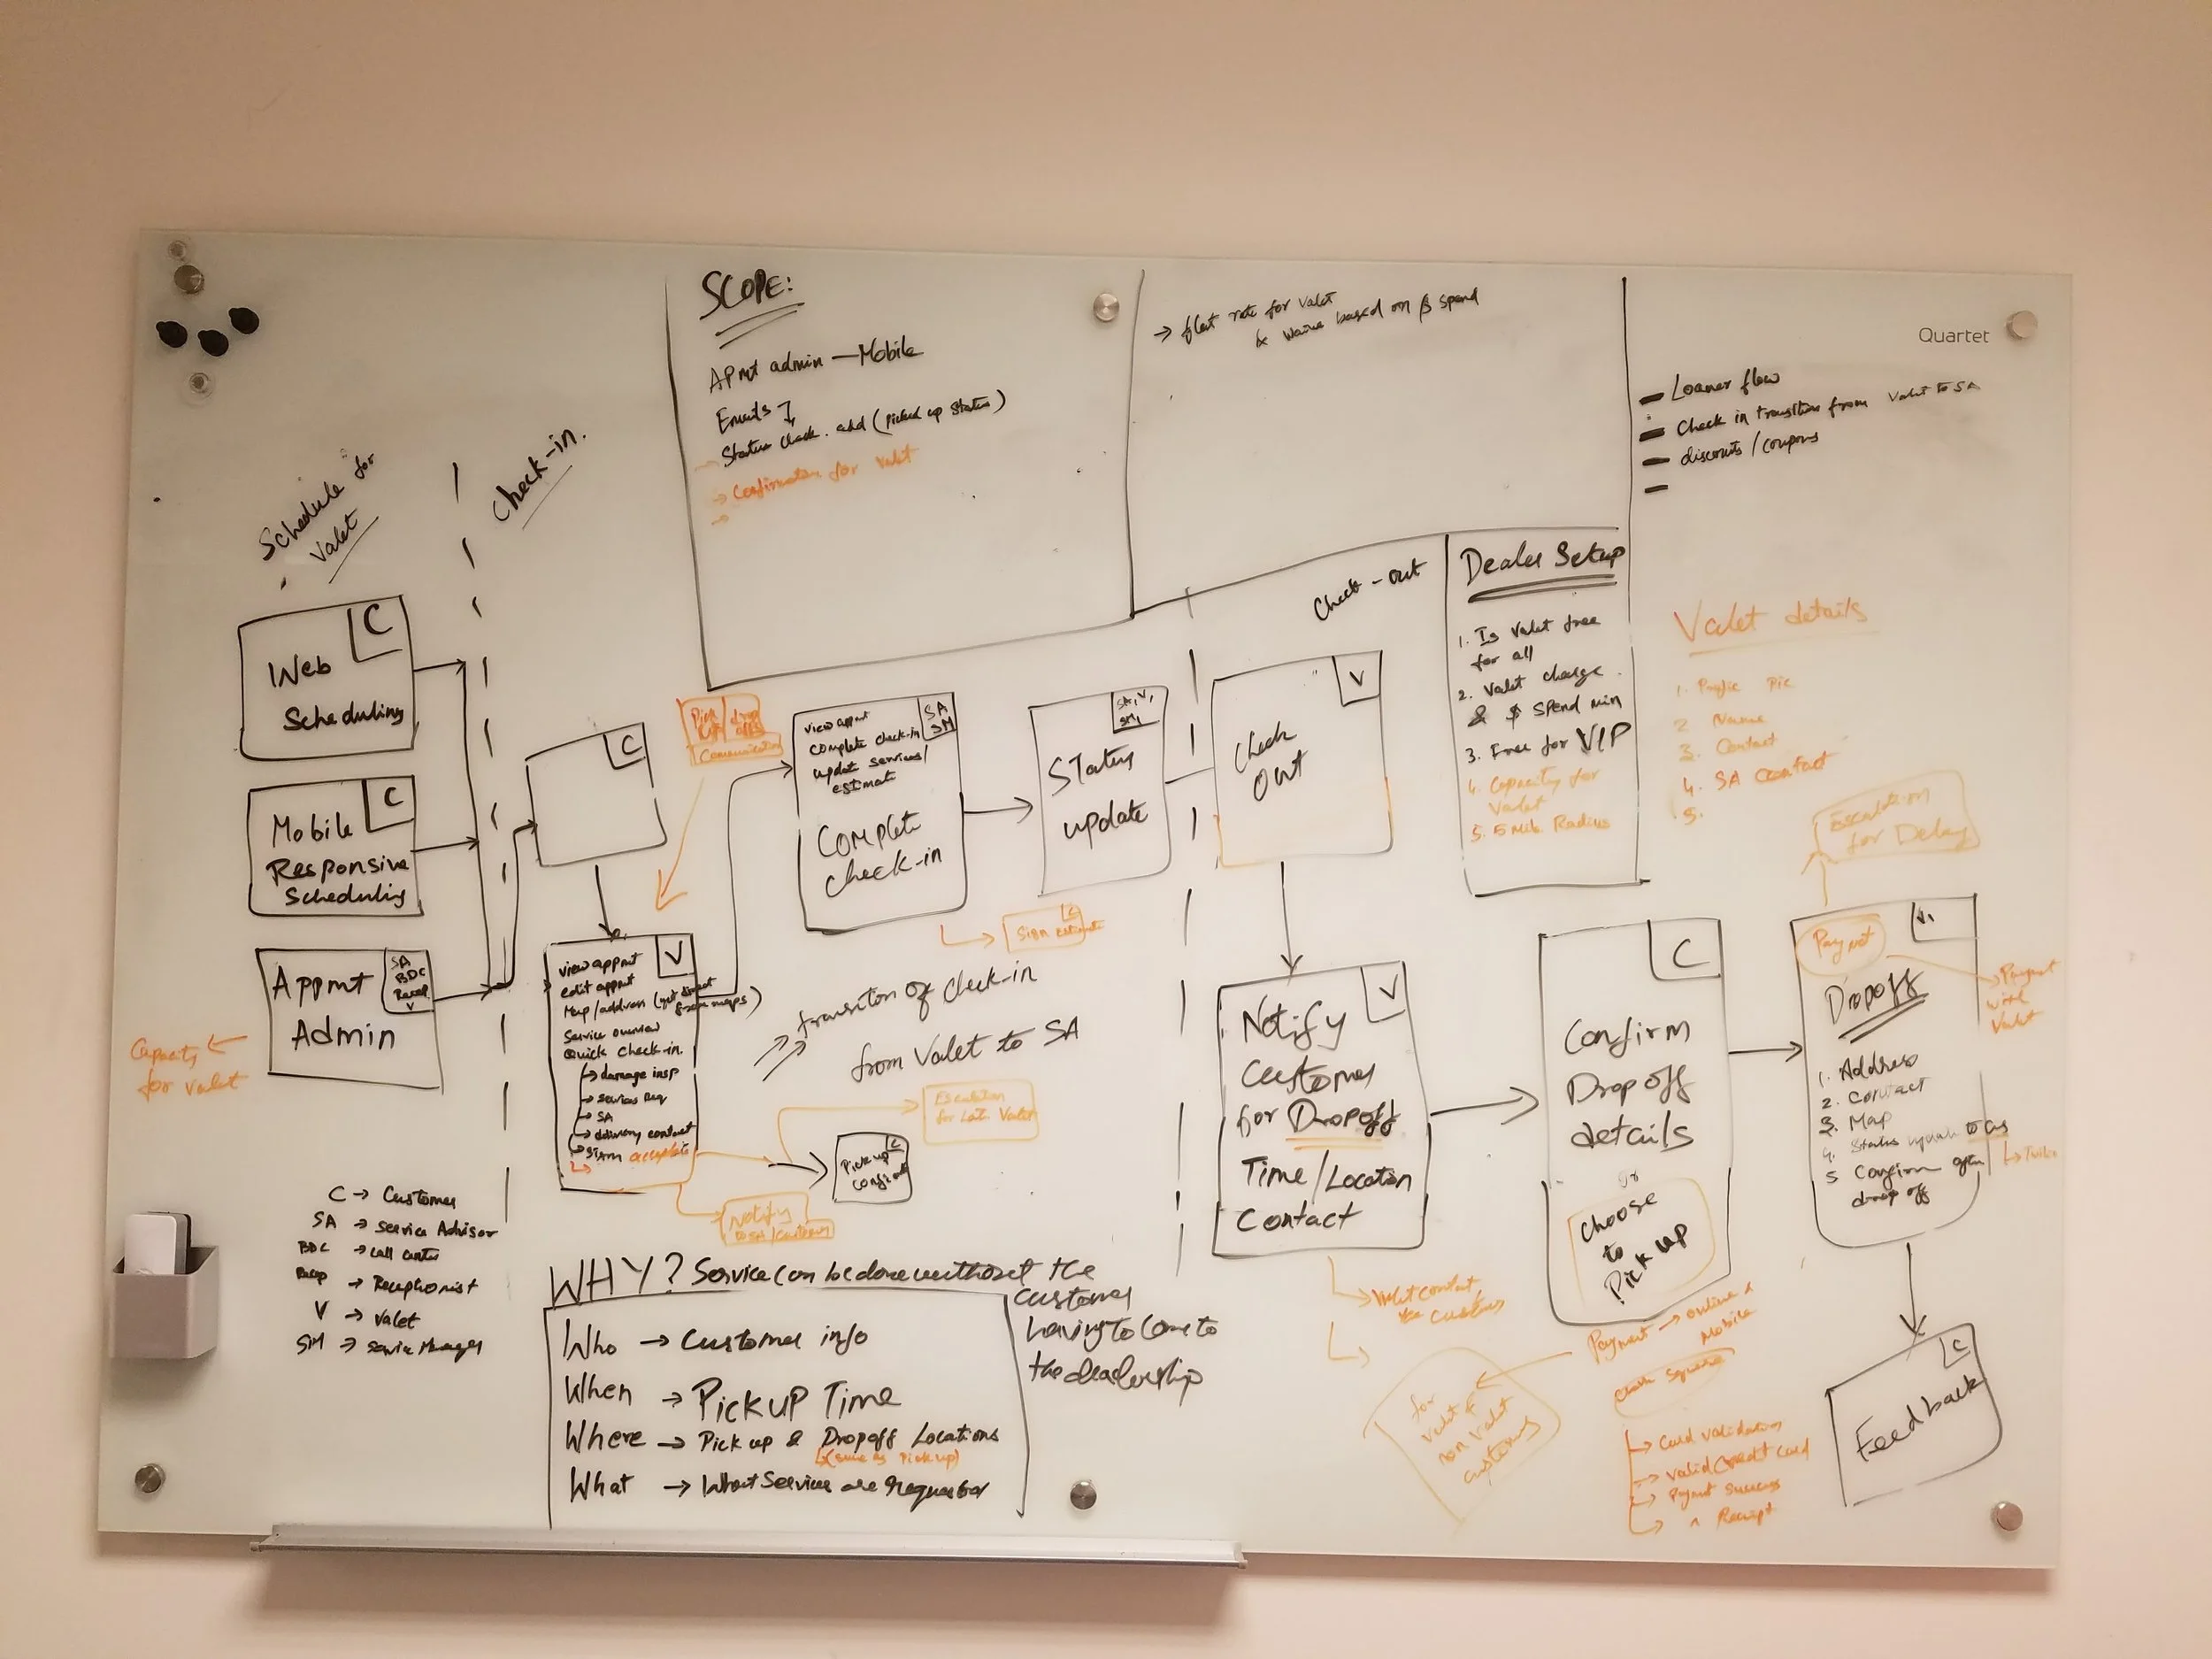 SCOPE:
APmt admin — Mobile
Emails
Status check. and (Picked up Status)
→ Confirmation for Valet
→
→ flat rate for valet
& waive based on $ spend
Quartet
Loaner flow
Check in transition from Valet to SA
discounts/coupons
Schedule for
Valet
Check-in.
Check-out
C
Web
Scheduling
C
Mobile
Responsive
Scheduling
SA
BDC
Recep
V
Appmt
Admin
Capacity
for valet
C
Pick
up/
drop
offs
Communication
V
view appmt
edit appmt
Map/address (get direct
from maps)
Service overview
Quick check-in.
→ damage insp
→ services Req
→ SA
→ delivery contact
→ sign accept
SA
SM
view appmt
complete check-in
update services/
estimate
Complete
check-in
SA, V,
SM,
Status
update
→ Sign estimate
C
V
Check
out
Dealer Setup
1. Is Valet free
for all
2. Valet charge
& $ spend min
3. Free for VIP
4. Capacity for
Valet
5. 5 Mile Radius
Valet details
1. Profile Pic
2 Name
3. Contact
4. SA Contact
5.
Escalation
for Delay
transition of check-in
from Valet to SA
Escalation
for Late Valet
C
Pick up
Confirm
Notify
to SA/Customer
V
Notify
Customer
for Dropoff
Time/Location
Contact
C
Confirm
Drop off
details
or
Choose
to
Pick up
V,
Paymt
Dropoff
1. Address
2. Contact
3. Map
4. Status update to Cus
5 Confirm after
drop off
→ Payment
with
Valet
→ Twilio
C
Feedback
→ Valet contact
customer
Payment → online &
Mobile
Square
→ Card validation
→ valid credit card
→ Paymt success
→ Receipt
for
valet &
non valet
customers
C → Customer
SA → Service Advisor
BDC → call center
Recep → Receptionist
V → Valet
SM → Service Manager
WHY? Service can be done without the
customer
having to come to
the dealership
Who → Customer info
When → Pickup Time
Where → Pick up & Dropoff Locations
(same as pick up)
What → What Services are